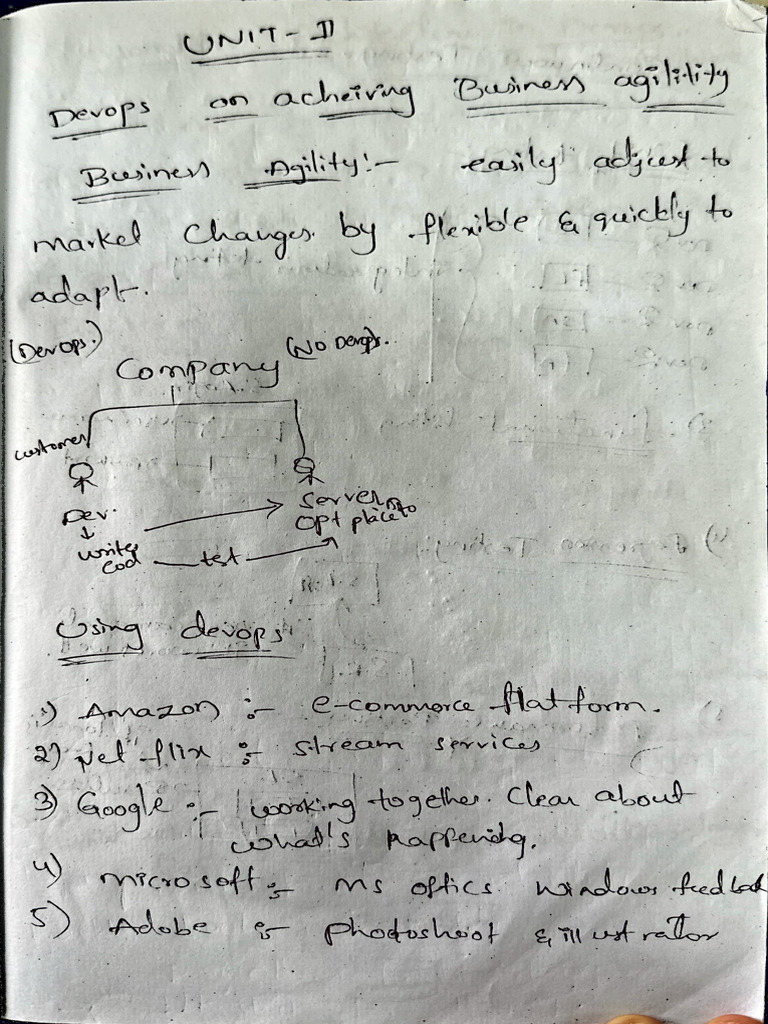 UNIT-II
Devops on acheiving Business agility
Business Agility:- easily adjust to
market changes by flexible & quickly to
adapt.
(Devops.) (No Devops.
Company
customer
Dev. Server
↓ opt place to
write
cod test
Using devops
1) Amazon :- e-commerce flatform.
2) Netflix :- stream services
3) Google :- working together. Clear about
what's happening.
4) microsoft :- ms offics windows feedback
5) Adobe :- photoshoot & illustrator